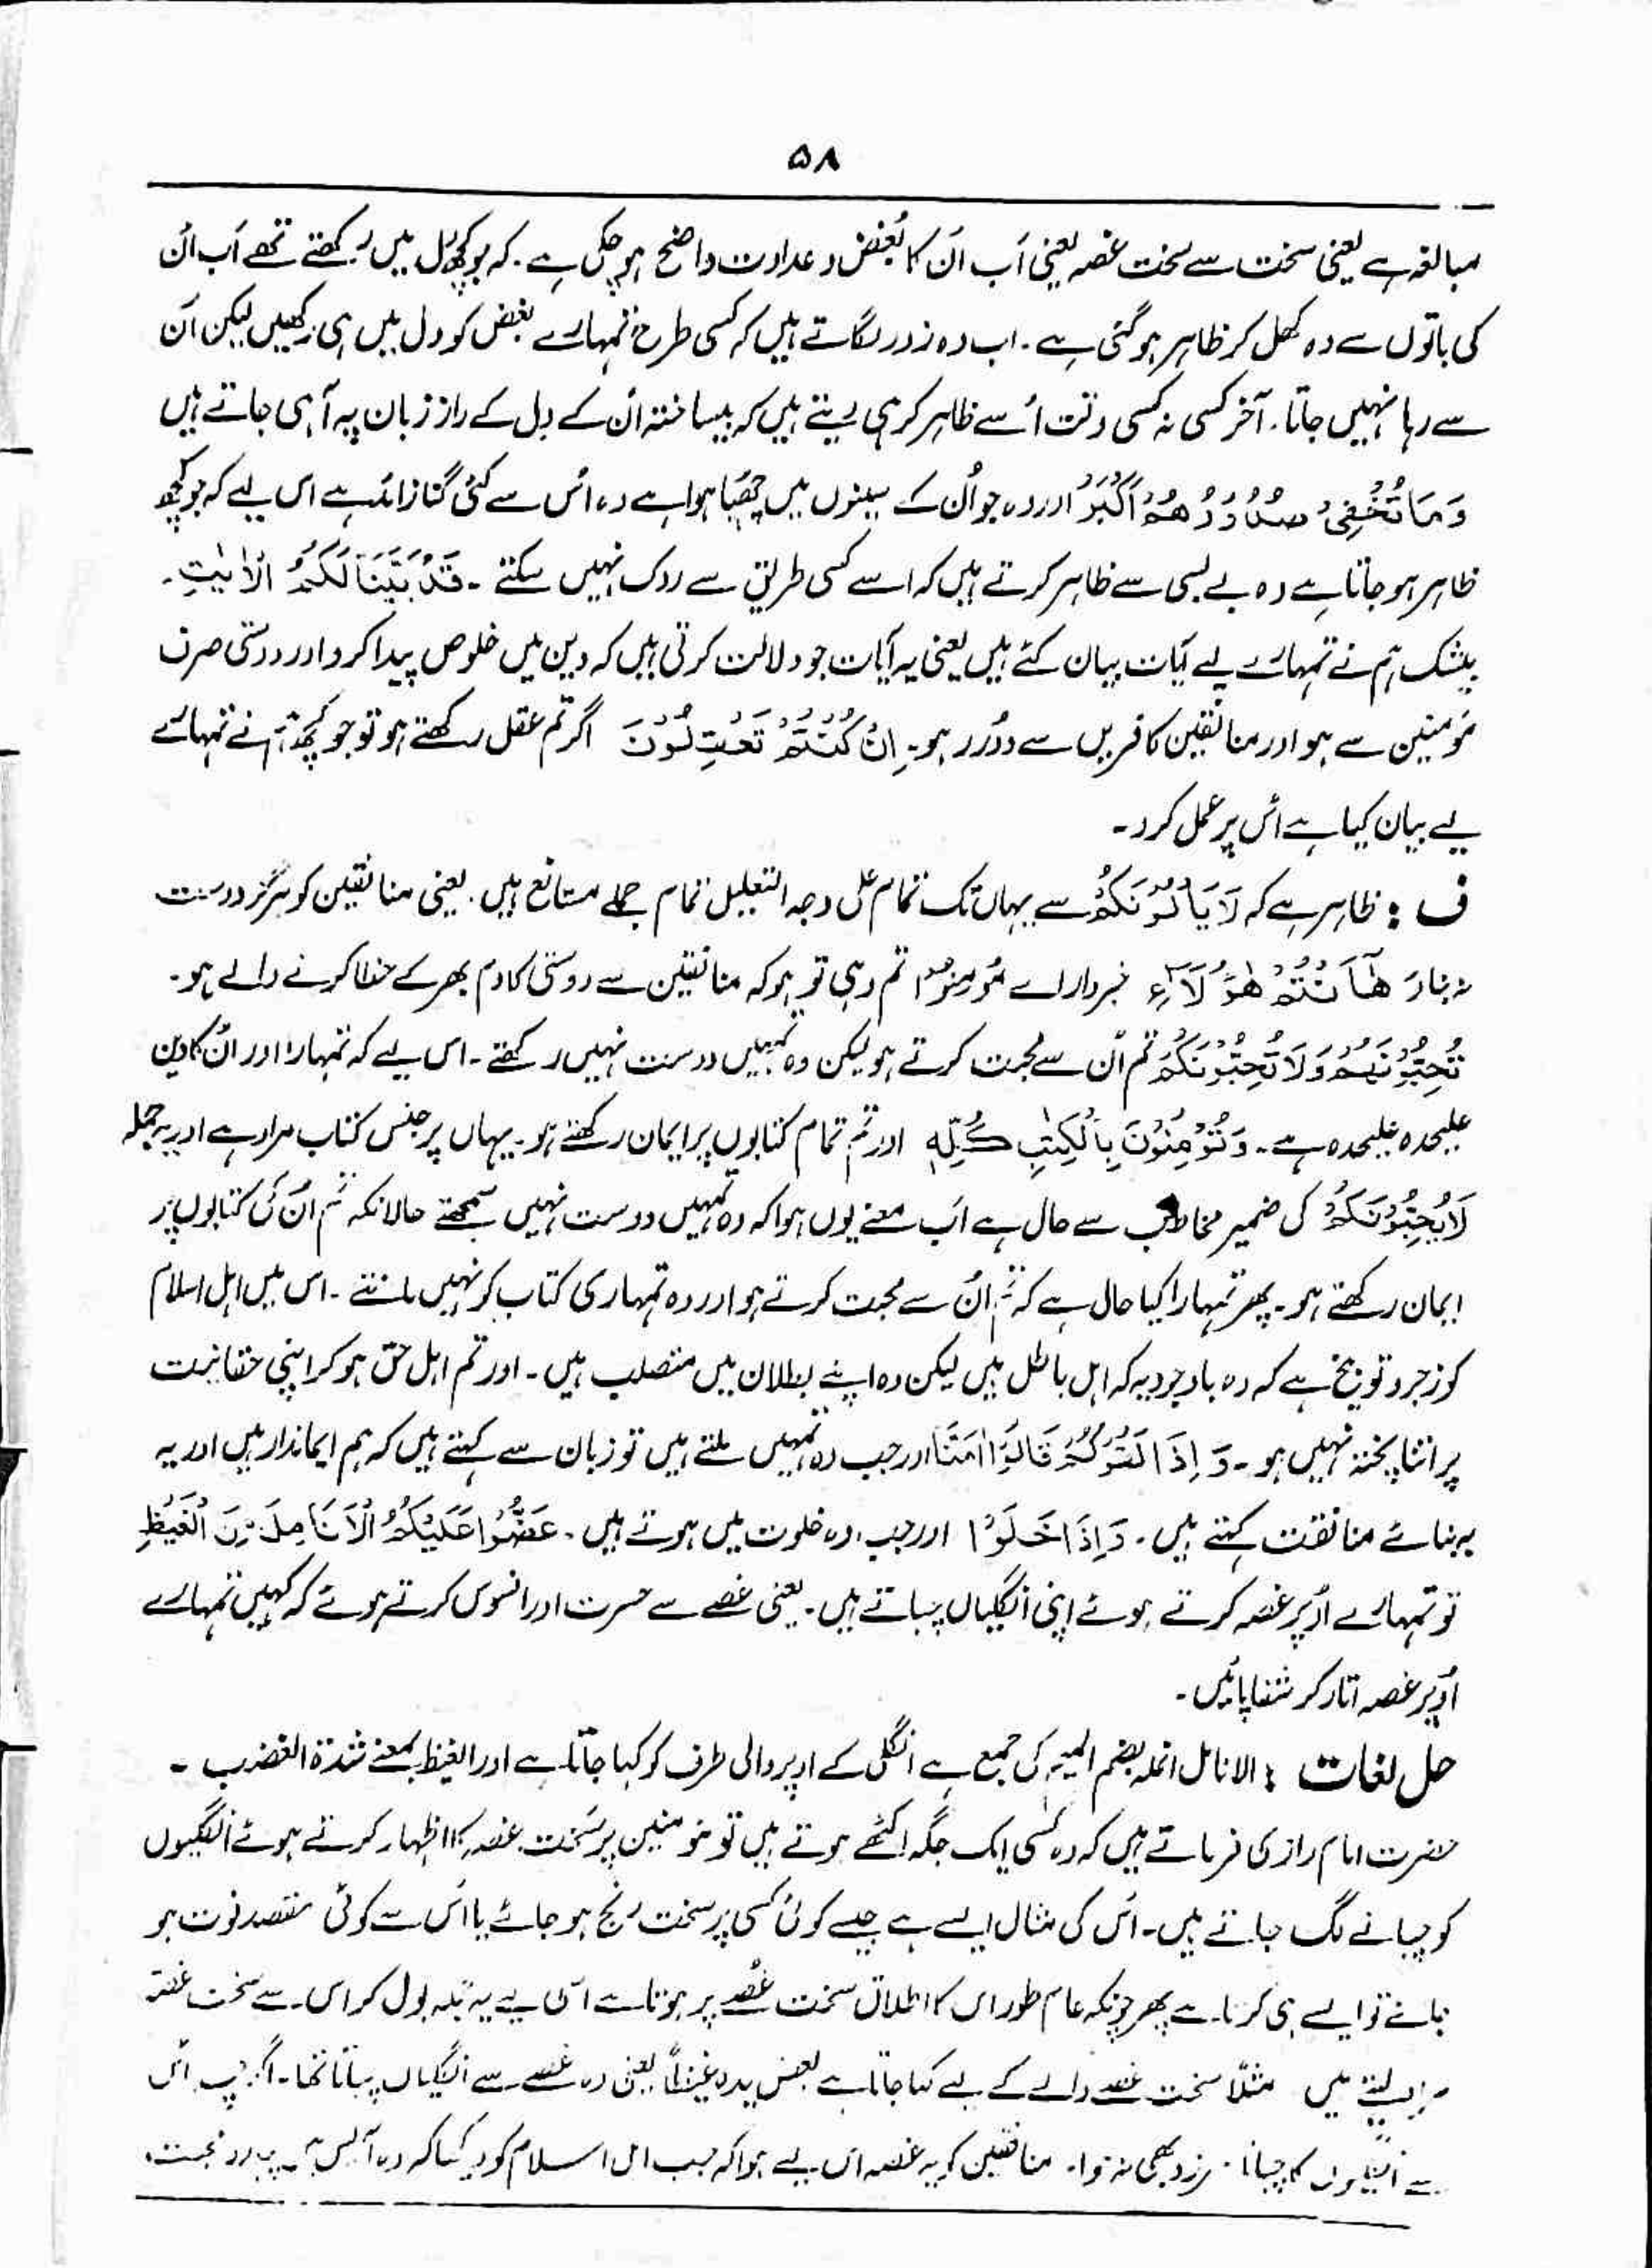 ۵۸
مبالغہ ہے یعنی سخت سے سخت غصہ یعنی اَب اُن کا بُغض و عداوت واضح ہو چکی ہے۔ کہ جو کچھ دل میں رکھتے تھے اَب اُن
کی باتوں سے وہ کھل کر ظاہر ہو گئی ہے۔ اب وہ زور لگاتے ہیں کہ کسی طرح تمہارے بغض کو دل میں ہی رکھیں لیکن اُن
سے رہا نہیں جاتا۔ آخر کسی نہ کسی وقت اُسے ظاہر کر ہی دیتے ہیں کہ بیساختہ اُن کے دِل کے راز زبان پہ آ ہی جاتے ہیں
وَمَا تُخْفِیْ صُدُوْرُھُمْ اَکْبَرُ اور وہ جو اُن کے سینوں میں چُھپا ہوا ہے وہ اُس سے کئی گنا زائد ہے اس لیے کہ جو کچھ
ظاہر ہو جاتا ہے وہ بے بسی سے ظاہر کرتے ہیں کہ اسے کسی طریق سے روک نہیں سکتے ۔ قَدْ بَیَّنَّا لَکُمُ الْاٰیٰتِ۔
بیشک ہم نے تمہارے لیے آیات بیان کئے ہیں یعنی یہ آیات جو دلالت کرتی ہیں کہ دین میں خلوص پیدا کرو اور دوستی صرف
مؤمنین سے ہو اور منافقین کافریں سے دُور رہو۔ اِنْ کُنْتُمْ تَعْقِلُوْنَ اگر تم عقل رکھتے ہو تو جو کچھ ہم نے تمہارے
لیے بیان کیا ہے اُس پر عمل کرو۔
ف : ظاہر ہے کہ لَا یَاْلُوْنَکُمْ سے یہاں تک تمام علی وجہ التعلیل تمام جملے مستانفہ ہیں۔ یعنی منافقین کو ہرگز دوست
نہ بناؤ ھٰٓاَنْتُمْ ھٰٓؤُلَآءِ خبردار اے مؤمنو! تم وہی تو ہو کہ منافقین سے دوستی کا دم بھر کے خطا کرنے والے ہو۔
تُحِبُّوْنَھُمْ وَلَا یُحِبُّوْنَکُمْ تم اُن سے محبت کرتے ہو لیکن وہ تمہیں دوست نہیں رکھتے۔ اس لیے کہ تمہارا اور اُن کا دین
علیحدہ علیحدہ ہے۔ وَتُؤْمِنُوْنَ بِالْکِتٰبِ کُلِّہٖ اور تم تمام کتابوں پر ایمان رکھتے ہو۔ یہاں پر جنس کتاب مراد ہے اور یہ جملہ
لَایُحِبُّوْنَکُمْ کی ضمیر مخاطب سے حال ہے اَب معنے یوں ہوا کہ وہ تمہیں دوست نہیں سمجھتے حالانکہ تم اُن کی کتابوں پر
ایمان رکھتے ہو۔ پھر تمہارا کیا حال ہے کہ تم اُن سے محبت کرتے ہو اور وہ تمہاری کتاب کو نہیں مانتے ۔ اس میں اہل اسلام
کو زجر و توبیخ ہے کہ وہ باوجودیہ کہ اہل باطل ہیں لیکن وہ اپنے بطلان میں متصلب ہیں ۔ اور تم اہل حق ہو کر اپنی حقانیت
پر اتنا پختہ نہیں ہو ۔ وَ اِذَا لَقُوْکُمْ قَالُوْٓا اٰمَنَّا اور جب وہ تمہیں ملتے ہیں تو زبان سے کہتے ہیں کہ ہم ایماندار ہیں اور یہ
بربنائے منافقت کہتے ہیں۔ وَاِذَا خَلَوْا اور جب وہ خلوت میں ہوتے ہیں ۔ عَضُّوْا عَلَیْکُمُ الْاَنَامِلَ مِنَ الْغَیْظِ
تو تمہارے اُوپر غصہ کرتے ہوئے اپنی انگلیاں چباتے ہیں۔ یعنی غصے سے حسرت اور افسوس کرتے ہوئے کہ کہیں تمہارے
اُوپر غصہ اتار کر شفا پائیں۔
حل لغات : الانامل انملہ بضم المیم کی جمع ہے انگلی کے اوپر والی طرف کو کہا جاتا ہے اور الغیظ بمعنے شدۃ الغضب ۔
حضرت امام رازی فرماتے ہیں کہ وہ کسی ایک جگہ اکٹھے ہوتے ہیں تو مؤمنین پر سخت غصہ کا اظہار کرتے ہوئے انگلیوں
کو چبانے لگ جاتے ہیں۔ اُس کی مثال ایسے ہے جیسے کوئی کسی پر سخت رنج ہو جائے یا اُس سے کوئی مقصد فوت ہو
جائے تو ایسے ہی کرتا ہے پھر چونکہ عام طور اس کا اطلاق سخت غصے پر ہوتا ہے اسی لیے یہ جملہ بول کر اس سے سخت غصہ
مراد لیتے ہیں مثلاً سخت غصے والے کے لیے کہا جاتا ہے یعض یدہ غیظاً یعنی وہ غصے سے انگلیاں چباتا تھا۔ اگرچہ اُس
سے انگلیوں کا چبانا سرزد بھی نہ ہوا۔ منافقین کو یہ غصہ اس لیے ہوا کہ جب اہل اسلام کو دیکھا کہ وہ آپس میں محبت،